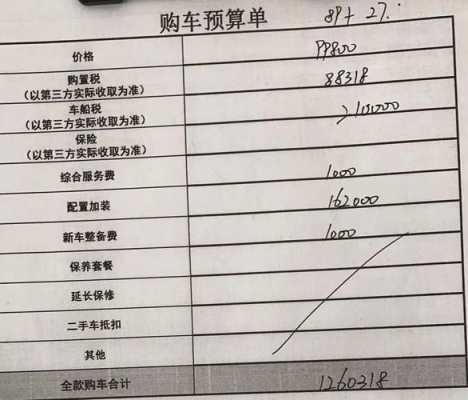 购车预算单 89+27.
价格
购置税
(以第三方实际收取为准) 88318
车船税
(以第三方实际收取为准) 10000
保险
(以第三方实际收取为准)
综合服务费 1000
配置加装 162000
新车整备费 1000
保养套餐
延长保修
二手车抵扣
其他
全款购车合计 1260318